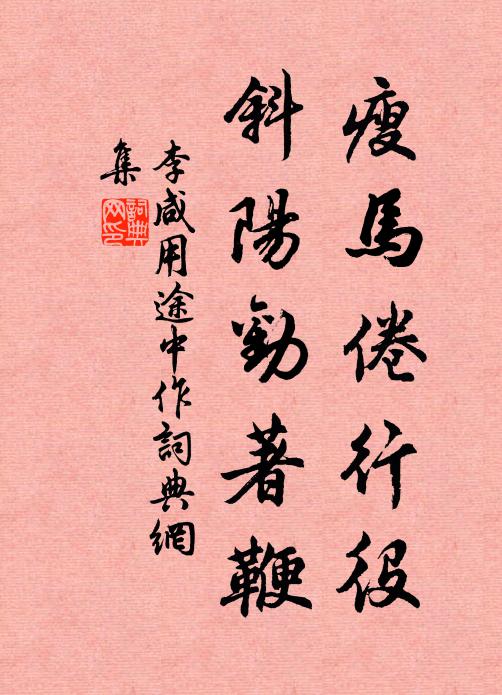 瘦馬倦行役
斜陽勸著鞭
李咸用途中作詞典網
集
詞典
网印